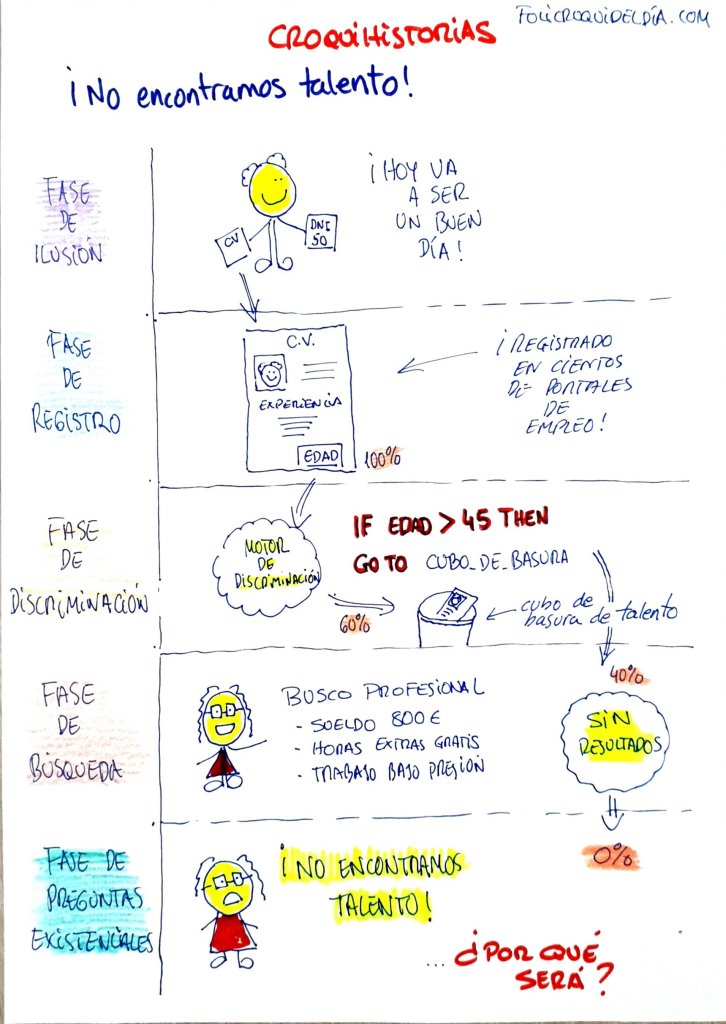 FOLICROQUIDELDÍA.COM
CROQUIHISTORIAS
¡No encontramos talento!
FASE
DE
ILUSIÓN
CV
DNI
50
¡HOY VA
A SER
UN BUEN
DÍA!
FASE
DE
REGISTRO
C.V.
EXPERIENCIA
EDAD
100%
¡REGISTRADO
EN CIENTOS
DE PORTALES
DE
EMPLEO!
FASE
DE
DISCRIMINACIÓN
MOTOR
DE
DISCRIMINACIÓN
IF EDAD > 45 THEN
GO TO CUBO_DE_BASURA
60%
cubo de
basura de talento
40%
FASE
DE
BÚSQUEDA
BUSCO PROFESIONAL
- SUELDO 800€
- HORAS EXTRAS GRATIS
- TRABAJO BAJO PRESIÓN
SIN
RESULTADOS
0%
FASE DE
PREGUNTAS
EXISTENCIALES
¡NO ENCONTRAMOS
TALENTO!
... ¿POR QUÉ
SERÁ?